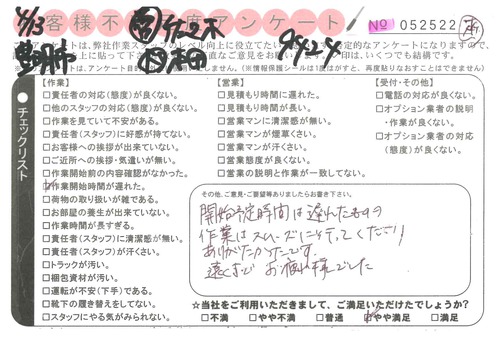 4/13
お客様不満度アンケート
No 052522
アンケートは、弊社作業スタッフのレベル向上に役立てたい
定期的なアンケートになりますので、
いつでも結構です。
(※情報保護シールは1度はがすと、再度貼りなおすことはできません)
チェックリスト
【作業】
□責任者の対応(態度)が良くない。
□他のスタッフの対応(態度)が良くない。
□作業を見ていて不安がある。
□責任者(スタッフ)に好感が持てない。
□お客様への挨拶が出来ていない。
□ご近所への挨拶・気遣いが無い。
□作業開始前の内容確認がなかった。
☑作業開始時間が遅れた。
□荷物の取り扱いが雑である。
□お部屋の養生が出来ていない。
□作業時間が長すぎる。
□責任者(スタッフ)に清潔感が無い。
□責任者(スタッフ)が汗くさい。
□トラックが汚い。
□梱包資材が汚い。
□運転が不安(下手)である。
□靴下の履き替えをしてない。
□スタッフにやる気がみられない。
【営業】
□見積もり時間に遅れた。
□見積もり時間が長い。
□営業マンに清潔感が無い。
□営業マンが煙草くさい。
□営業マンが汗くさい。
□営業態度が良くない。
□営業の説明と作業が一致してない。
【受付・その他】
□電話の対応が良くない。
□オプション業者の説明
・作業が良くない。
□オプション業者の対応
(態度)が良くない。
その他、ご意見・ご要望等ありましたらお書き下さい。
開始予定時間は遅れたものの
作業はスムーズに行ってくださり
ありがたかったです。
遠くまで お疲れ様でした
☆当社をご利用いただきまして、ご満足いただけたでしょうか?
□不満 □やや不満 □普通 ☑やや満足 □満足